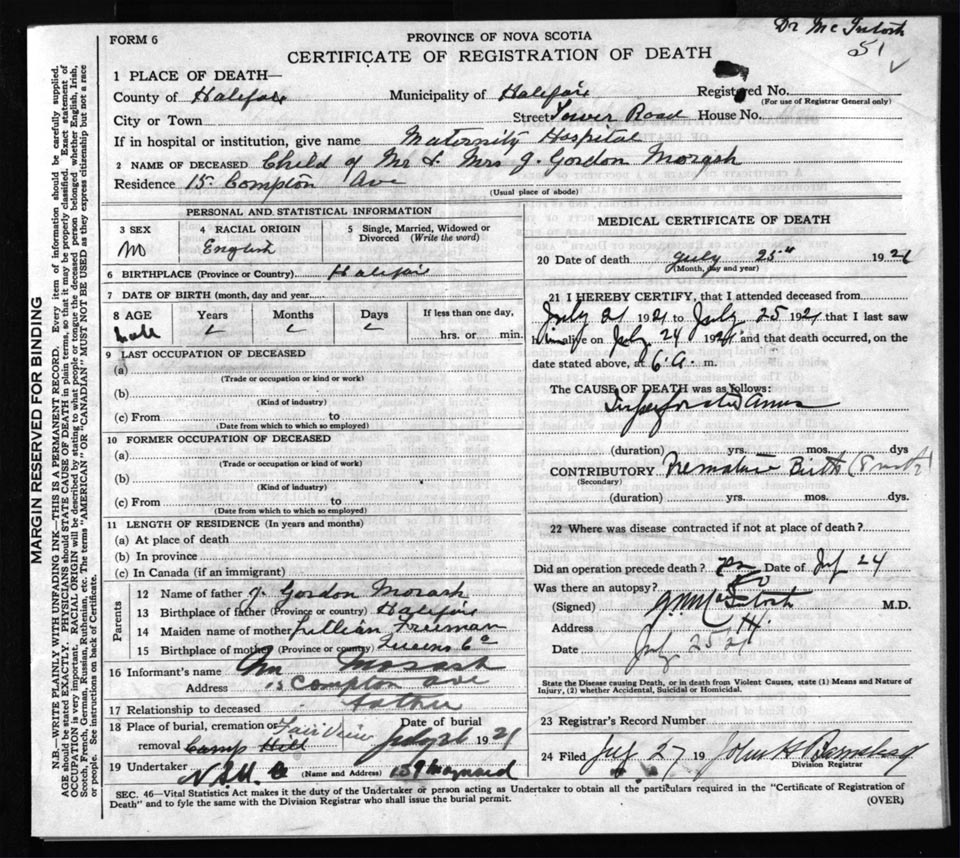 Dr McIntosh
51
FORM 6
PROVINCE OF NOVA SCOTIA
CERTIFICATE OF REGISTRATION OF DEATH
1 PLACE OF DEATH—
County of Halifax Municipality of Halifax Registered No.
(For use of Registrar General only)
City or Town Street Tower Road House No.
If in hospital or institution, give name Maternity Hospital
2 NAME OF DECEASED Child of Mr & Mrs J. Gordon Morash
Residence 15 Compton Ave
(Usual place of abode)
PERSONAL AND STATISTICAL INFORMATION
3 SEX
M
4 RACIAL ORIGIN
English
5 Single, Married, Widowed or Divorced (Write the word)
6 BIRTHPLACE (Province or Country) Halifax
7 DATE OF BIRTH (month, day and year)
8 AGE
Years
Months
Days
If less than one day,
hrs. or min.
9 LAST OCCUPATION OF DECEASED
(a)
(Trade or occupation or kind or work)
(b)
(Kind of industry)
(c) From to
(Date from which to which so employed)
10 FORMER OCCUPATION OF DECEASED
(a)
(Trade or occupation or kind of work)
(b)
(Kind of industry)
(c) From to
(Date from which to which so employed)
11 LENGTH OF RESIDENCE (In years and months)
(a) At place of death
(b) In province
(c) In Canada (if an immigrant)
Parents
12 Name of father J. Gordon Morash
13 Birthplace of father (Province or country) Halifax
14 Maiden name of mother Lillian Freeman
15 Birthplace of mother (Province or country) Queens Co
16 Informant's name Mr Morash
Address 15 Compton Ave
17 Relationship to deceased Father
18 Place of burial, cremation or removal Fairview
Camp Hill
Date of burial
July 26 1921
19 Undertaker N.S.U. Co (Name and Address) 159 Maynard
MEDICAL CERTIFICATE OF DEATH
20 Date of death July 25th 1921
(Month, day and year)
21 I HEREBY CERTIFY, that I attended deceased from
July 21 1921 to July 25 1921 that I last saw
him alive on July 24 1921 and that death occurred, on the
date stated above, at 6 a. m.
The CAUSE OF DEATH was as follows:
Imperforated Anus
(duration) yrs. mos. dys
CONTRIBUTORY Premature Birth (8 mths)
(Secondary)
(duration) yrs. mos. dys.
22 Where was disease contracted if not at place of death?
Did an operation precede death? Date of July 24
Was there an autopsy? no
(Signed) McIntosh M.D.
Address
Date July 25 21
State the Disease causing Death, or in death from Violent Causes, state (1) Means and Nature of Injury, (2) whether Accidental, Suicidal or Homicidal.
23 Registrar's Record Number
24 Filed July 27 19 John H
Division Registrar
SEC. 46—Vital Statistics Act makes it the duty of the Undertaker or person acting as Undertaker to obtain all the particulars required in the "Certificate of Registration of
Death" and to fyle the same with the Division Registrar who shall issue the burial permit.
(OVER)
MARGIN RESERVED FOR BINDING
N.B.—WRITE PLAINLY WITH UNFADING INK—THIS IS A PERMANENT RECORD. Every item of information should be carefully supplied.
AGE should be stated EXACTLY. PHYSICIANS should STATE CAUSE OF DEATH in plain terms, so that it may be properly classified. Exact statement of
OCCUPATION is very important. RACIAL ORIGIN will be described by stating to what people or tongue the deceased person belonged whether English, Irish,
Scotch, French, German, Russian, Ruthenian, etc. The terms "AMERICAN" OR "CANADIAN" MUST NOT BE USED as they express citizenship but not a race
or people. See instructions on back of Certificate.